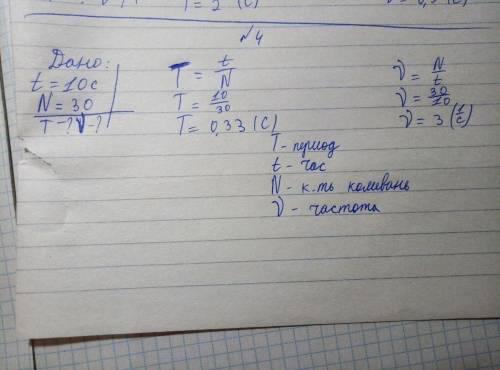 T = 2 (с)
№4
Дано:
t = 10с
N = 30
T - ? ν - ?
T = t/N
T = 10/30
T = 0,33 (с)
ν = N/t
ν = 30/10
ν = 3 (1/с)
T - период
t - час
N - к.ть коливань
ν - частота